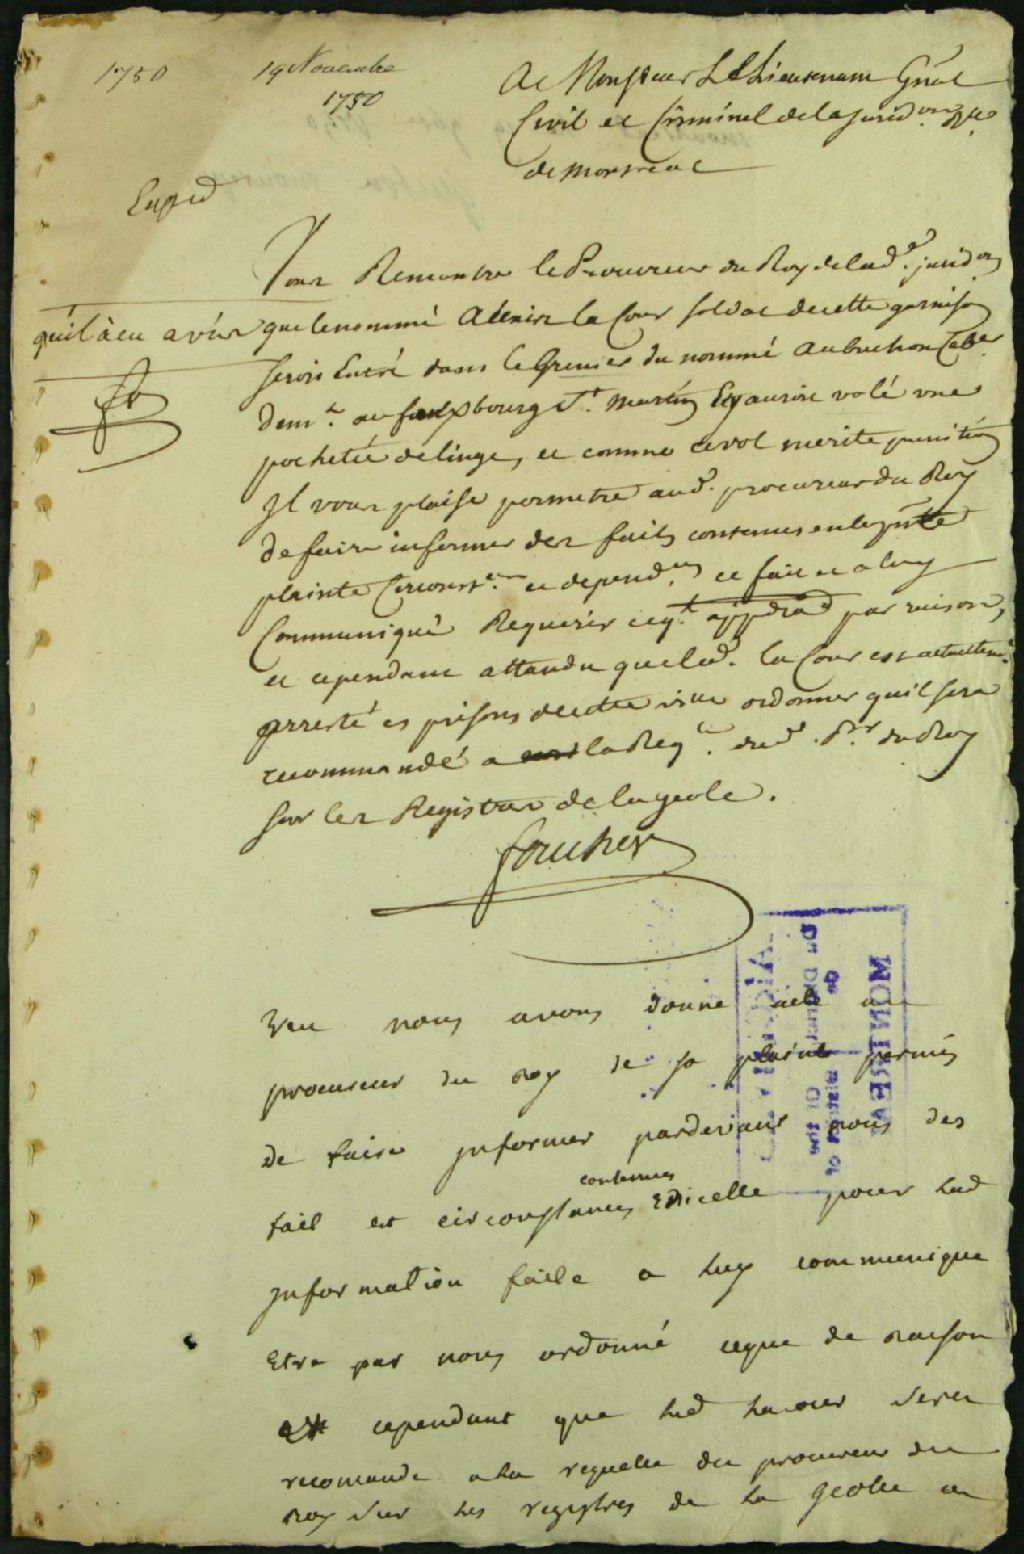 1750
19 Novembre
1750
A Monsieur Le Lieutenant Gñal
Civil et Criminel de la Jurid.on R.lle
de Montreal
Exped
Vous Remontre le Procureur du Roy de lad.e jurid.on
qu'il à eu avis que le nommé la Cour soldat de cette garnison
seroit Entré dans le Grenier du nommé aubuchon Cab.er
dem.t au fauxbourg S.t martin Ety auroit volé une
pochetée de linge, et comme ce vol merite punition
Il vous plaise permettre aud. procureur du Roy
de faire informer des faits contenus en la pñte
plainte Circonst.ces et depend.ces ce fait et a luy
Communiqué Requerir ce q.t appdra par raison,
et cependant attendu que led. la Cour est actuellem.t
arresté es prisons de cette ville ordonner qu'il sera
recommandé a la Req.te dud. P.r du Roy
sur les Registres de la geole.
foucher
Veu nous avons donné acte au
procureur du roy de sa plainte permis
de faire informer pardevant nous des
contenues
fait et circonstances En icelle pour lad
information faite a luy communique
Etre par nous ordonné ceque de raison
et cependant que led lacour sera
recomande a la requette du procureur du
roy sur les registres de la geolle
MONTREAL